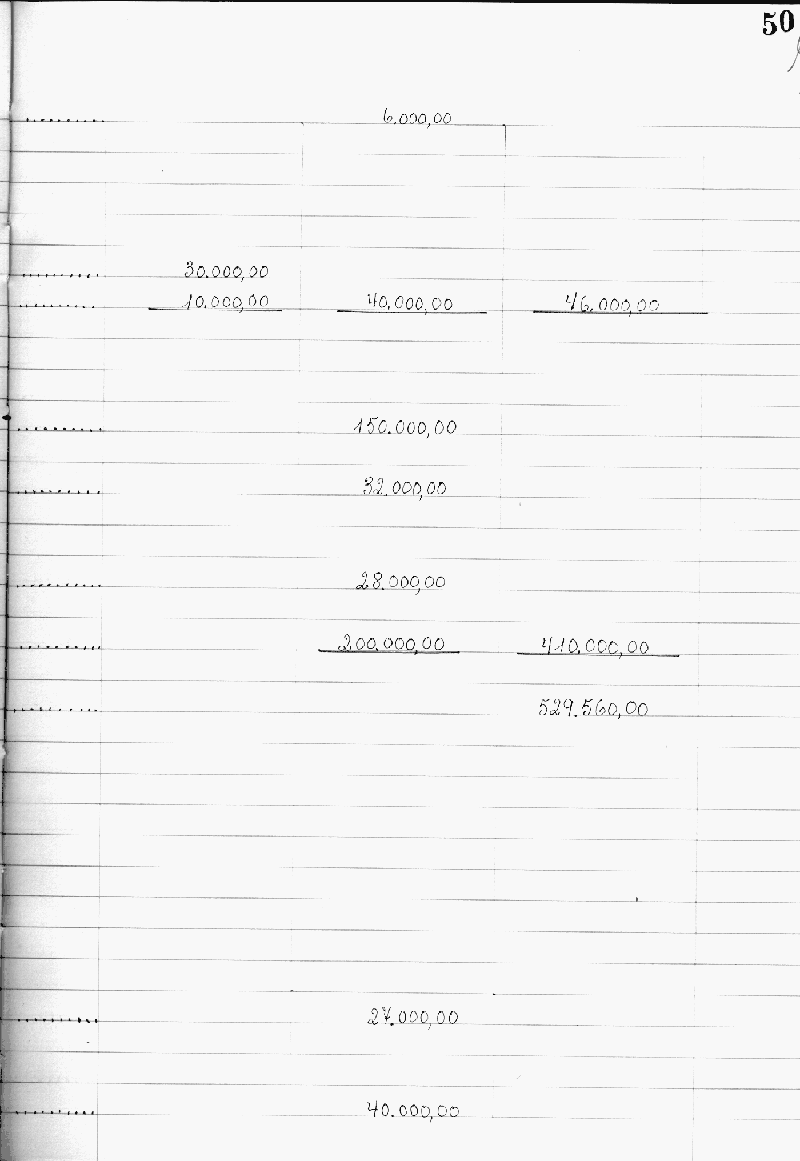 50
.......... 6.000,00
.......... 30.000,00
.......... 10.000,00 40.000,00 46.000,00
.......... 150.000,00
.......... 32.000,00
.......... 28.000,00
.......... 200.000,00 410.000,00
.......... 529.560,00
.......... 27.000,00
.......... 40.000,00